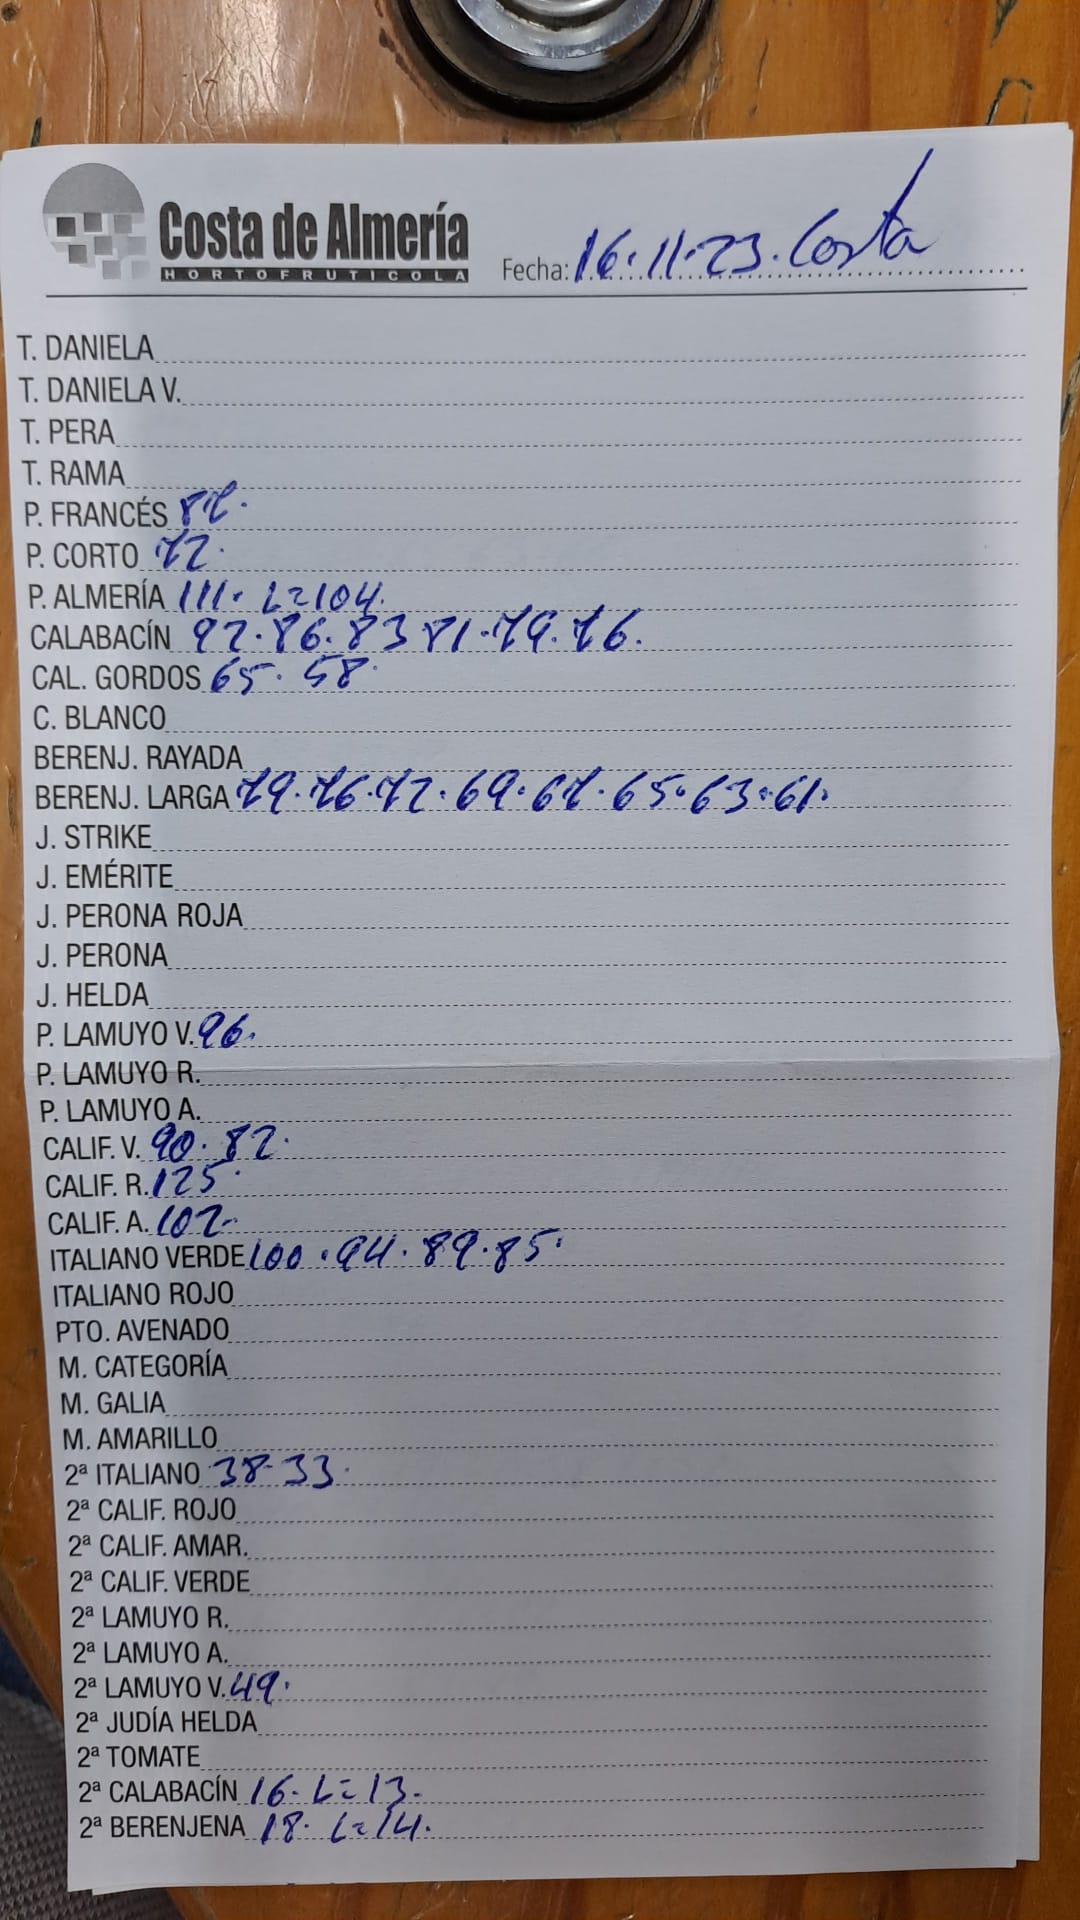 Costa de Almería
HORTOFRUTICOLA
Fecha: 16.11.23. Costa
T. DANIELA
T. DANIELA V.
T. PERA
T. RAMA
P. FRANCÉS 87.
P. CORTO 72.
P. ALMERÍA 111. L=104.
CALABACÍN 92.86.83 81.79.76.
CAL. GORDOS 65. 58.
C. BLANCO
BERENJ. RAYADA
BERENJ. LARGA 79.76.72.69.67.65.63.61.
J. STRIKE
J. EMÉRITE
J. PERONA ROJA
J. PERONA
J. HELDA
P. LAMUYO V. 96.
P. LAMUYO R.
P. LAMUYO A.
CALIF. V. 90. 82.
CALIF. R. 125.
CALIF. A. 102.
ITALIANO VERDE 100.94.89.85.
ITALIANO ROJO
PTO. AVENADO
M. CATEGORÍA
M. GALIA
M. AMARILLO
2ª ITALIANO 38-33.
2ª CALIF. ROJO
2ª CALIF. AMAR.
2ª CALIF. VERDE
2ª LAMUYO R.
2ª LAMUYO A.
2ª LAMUYO V. 49.
2ª JUDÍA HELDA
2ª TOMATE
2ª CALABACÍN 16. L=13.
2ª BERENJENA 18. L=14.